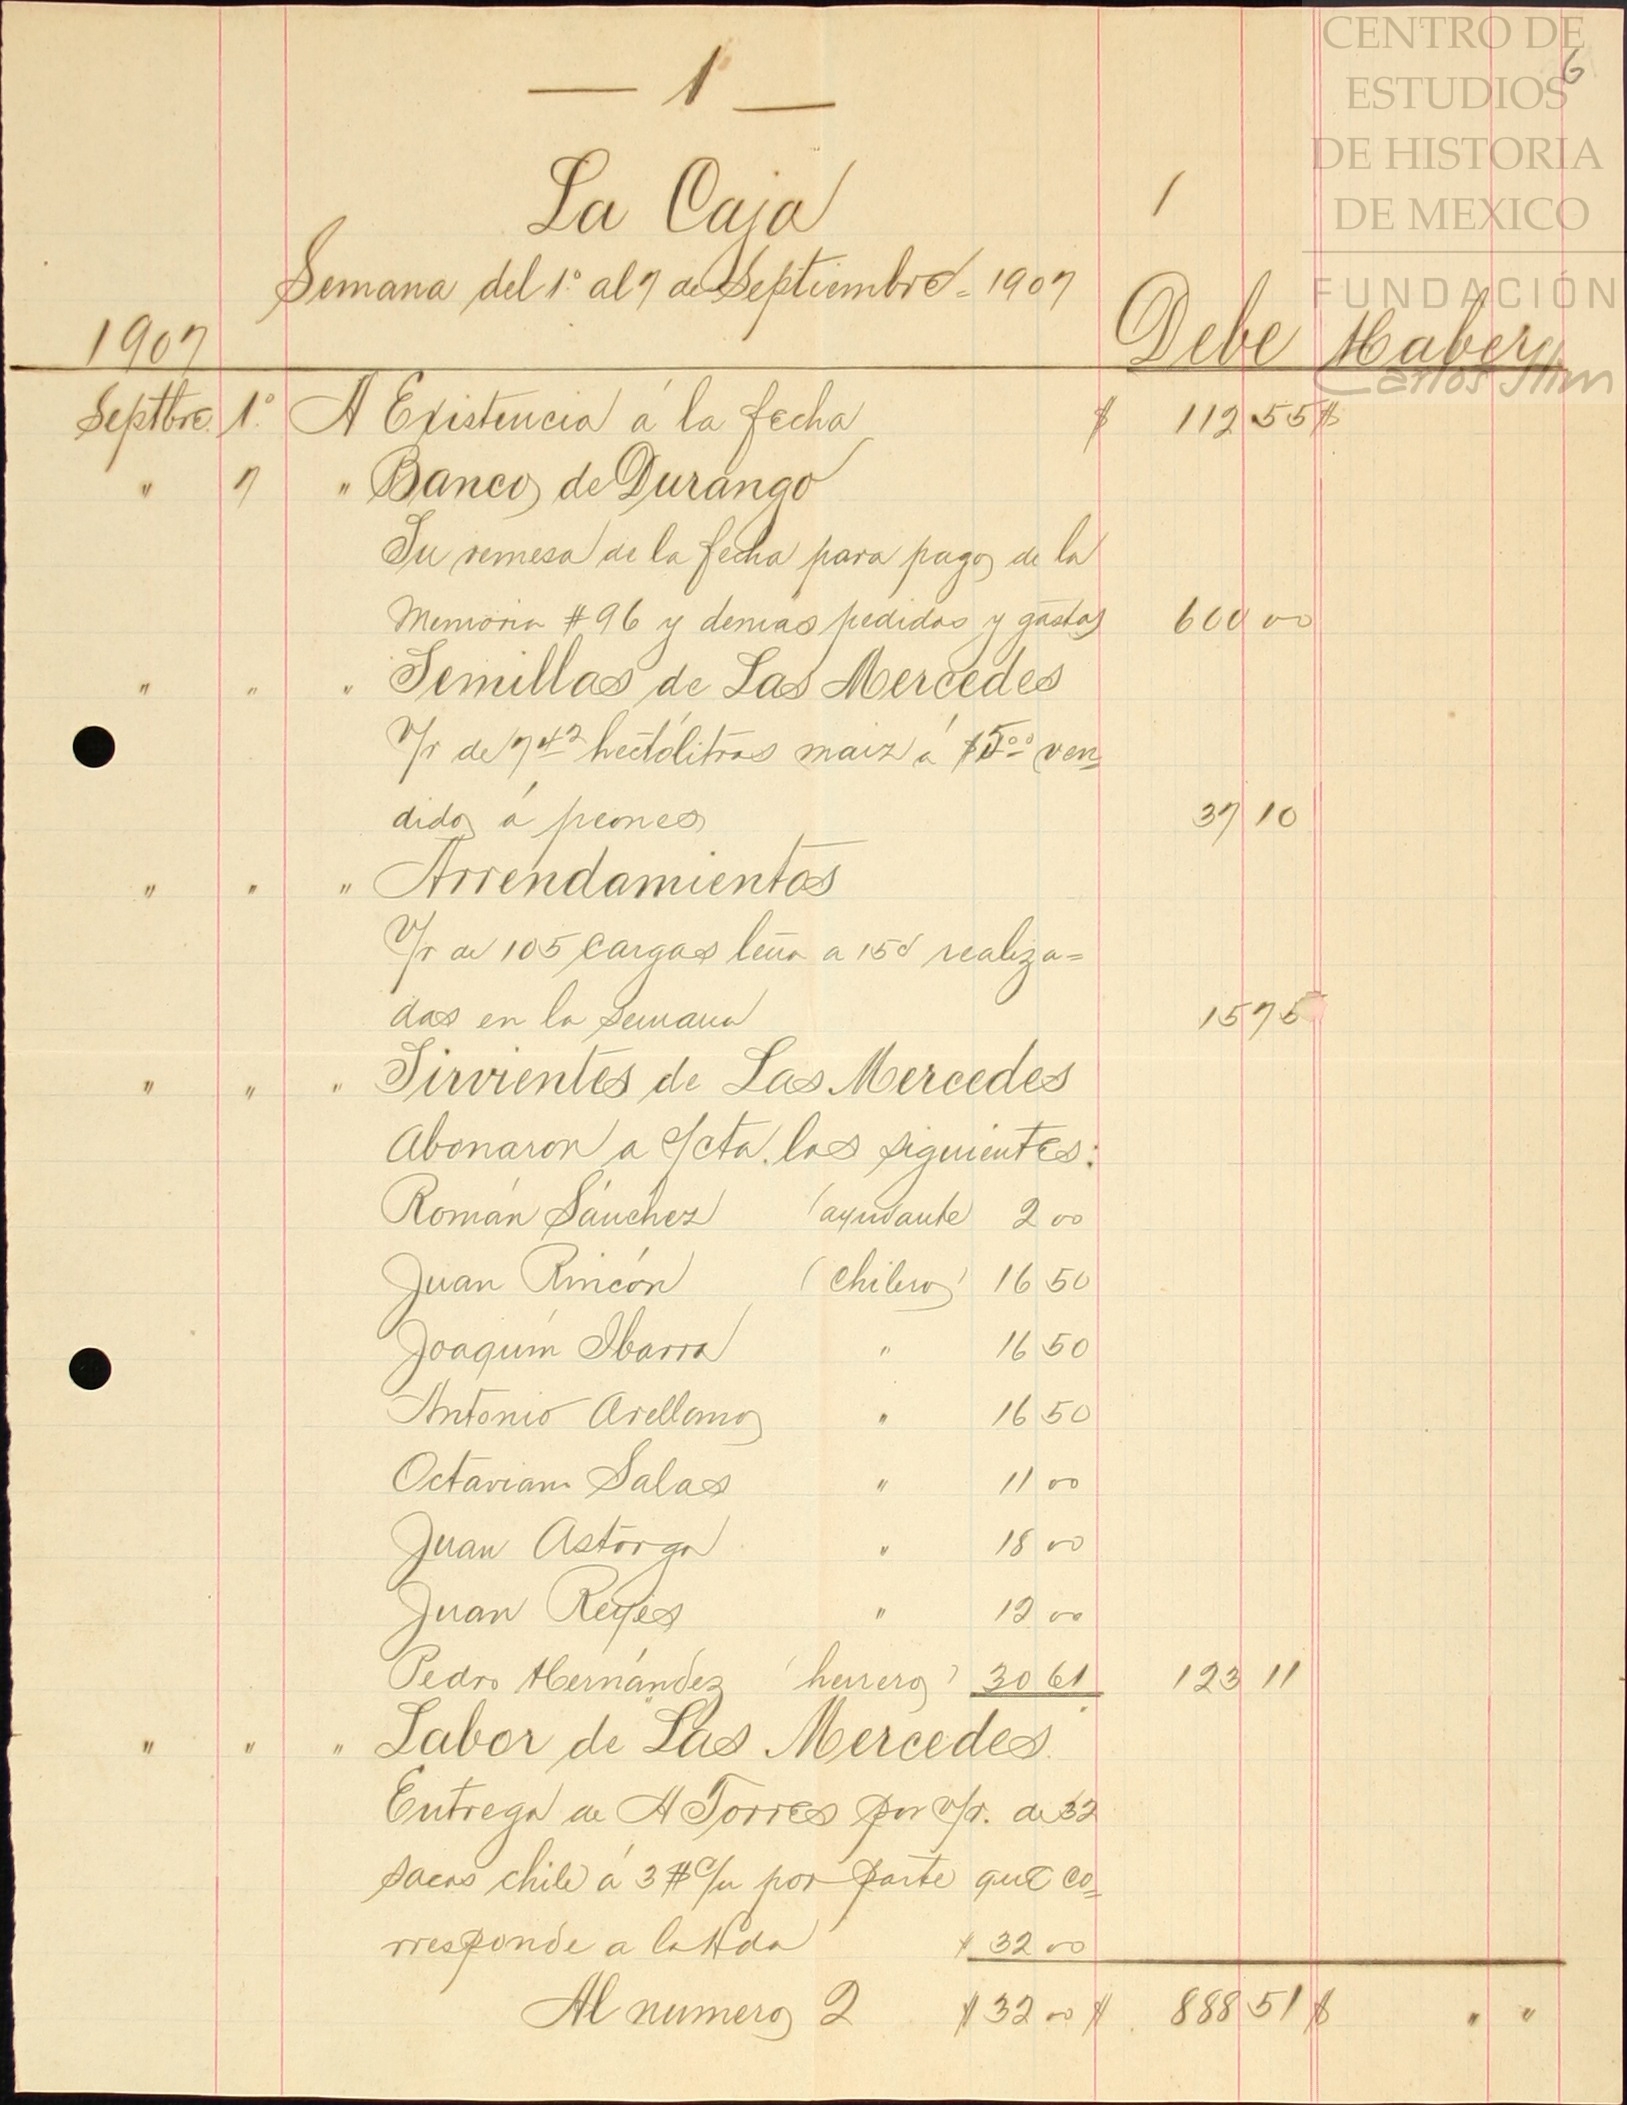 CENTRO DE
ESTUDIOS
DE HISTORIA
DE MEXICO
FUNDACIÓN
Carlos Slim
6
— 1 —
La Caja 1
Semana del 1º al 7 de Septiembre = 1907
1907 Debe Haber
Septbre. 1º A Existencia á la fecha $ 112 55 $
" 7 " Banco de Durango
Su remesa de la fecha para pago de la
Memoria # 96 y demas pedidos y gastos 600 00
" " " Semillas de Las Mercedes
V/r de 7 42 hectólitros maiz á $5 00 ven=
dido á peones 37 10
" " " Arrendamientos
V/r de 105 cargas leña a 15¢ realiza=
das en la semana 15 75
" " " Sirvientes de Las Mercedes
Abonaron a s/cta. los siguientes:
Román Sánchez (ayudante 2 00
Juan Rincón (chilero) 16 50
Joaquin Ibarra " 16 50
Antonio Arellano " 16 50
Octaviano Salas " 11 00
Juan Astorga " 18 00
Juan Reyes " 12 00
Pedro Hernández (herrero) 30 61 123 11
" " " Labor de Las Mercedes.
Entrega de A Torres por v/r. de 32
sacos chile á 3 $ c/u por parte que co=
rresponde a la Hda $ 32 00
Al numero 2 $ 32 00 $ 888 51 $ " "